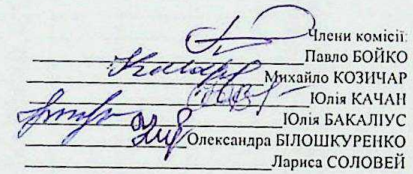 Члени комісії:
Павло БОЙКО
Михайло КОЗИЧАР
Юлія КАЧАН
Юлія БАКАЛІУС
Олександра БІЛОШКУРЕНКО
Лариса СОЛОВЕЙ